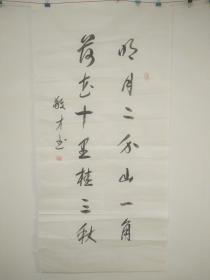 明月二分山一角
荷花十里桂三秋
敏才书